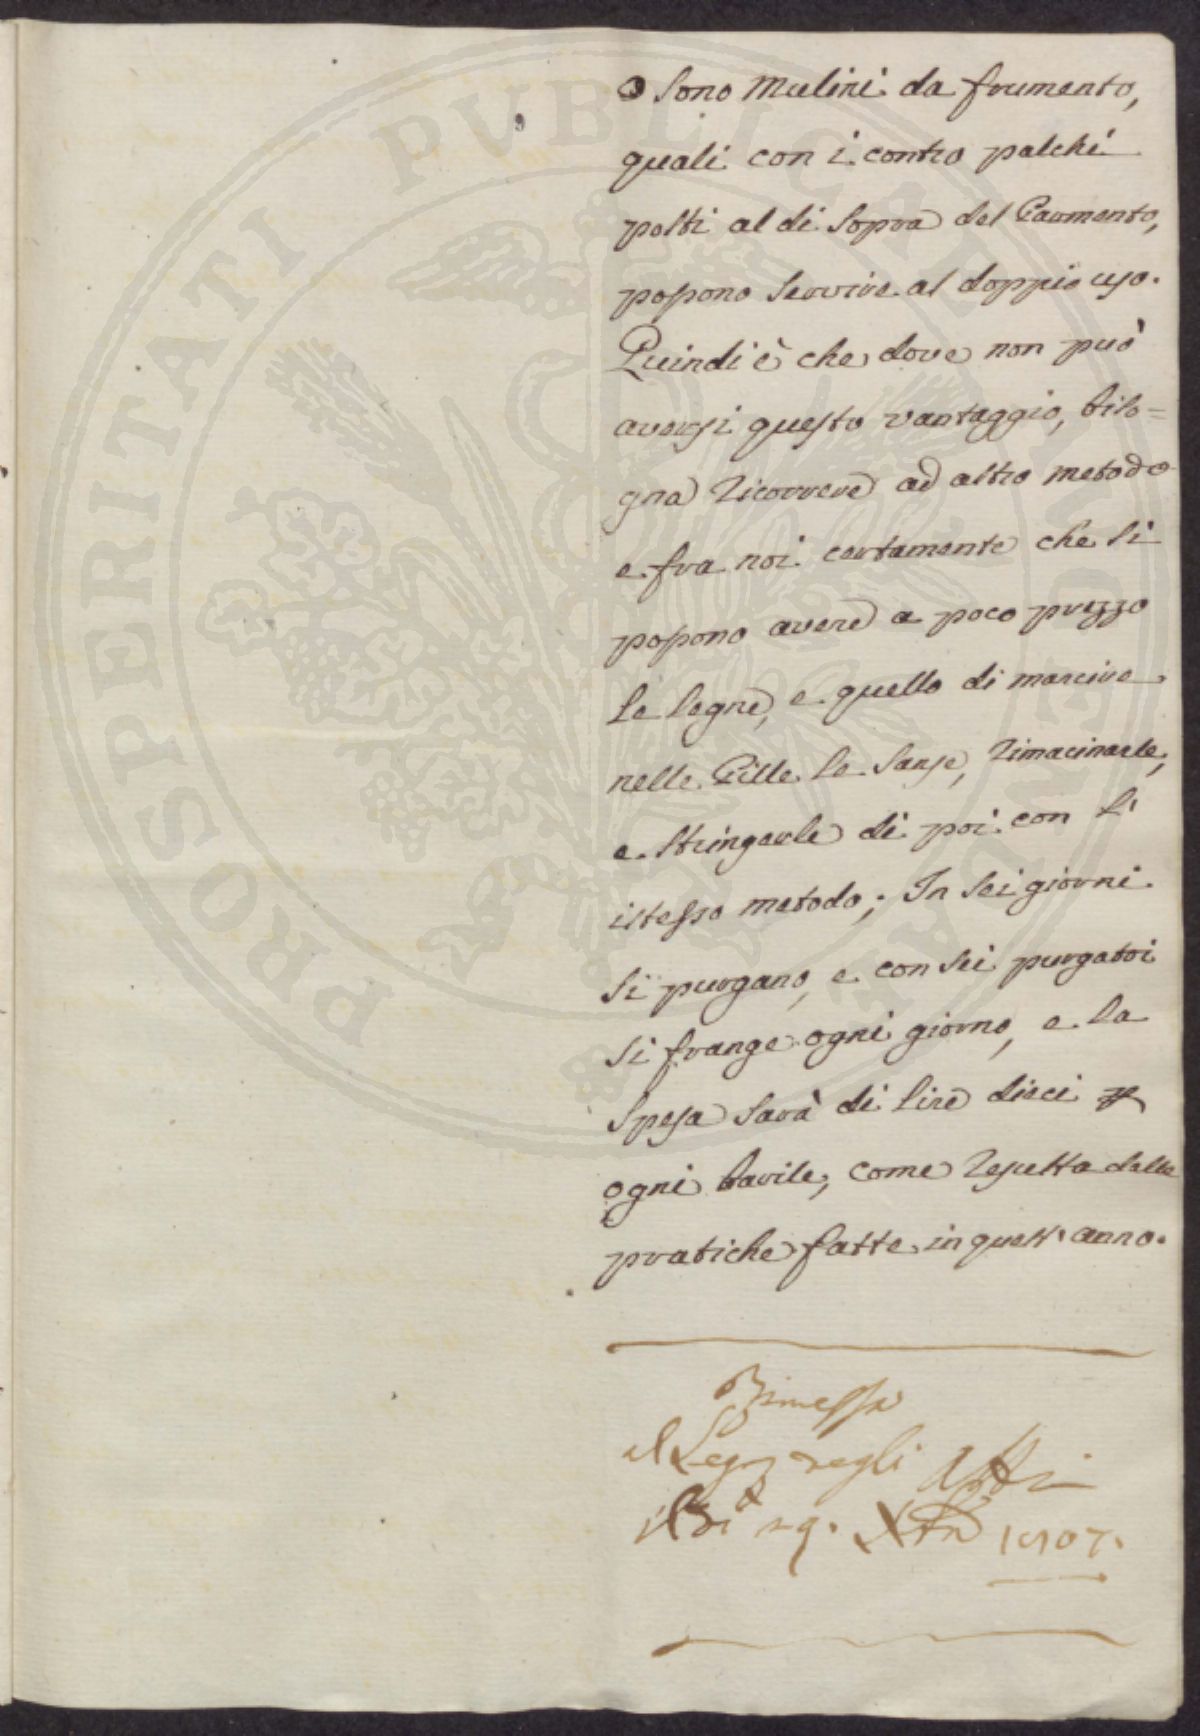 PROSPERITATI PUBLICAE AUGENDAE
o sono Mulini da frumento,
quali con i contro palchi
posti al di sopra del Paumento,
possono servire al doppio uso.
Quindi è che dove non può
aversi questo vantaggio, biso=
gna ricorrere ad altro metodo
e fra noi certamente che si
possono avere a poco prezzo
le legne, e quello di marcire
nelle Pille le sanse, rimacinarle,
e stringerle di poi con l'
istesso metodo; In sei giorni
si purgano, e con sei purgatoi
si frange ogni giorno, e la
spesa sarà di lire dieci p
ogni barile, come resulta dalle
pratiche fatte in quest'anno.
Rimessa
al Segr negli Atti
il dì 29. Xbre 1807.